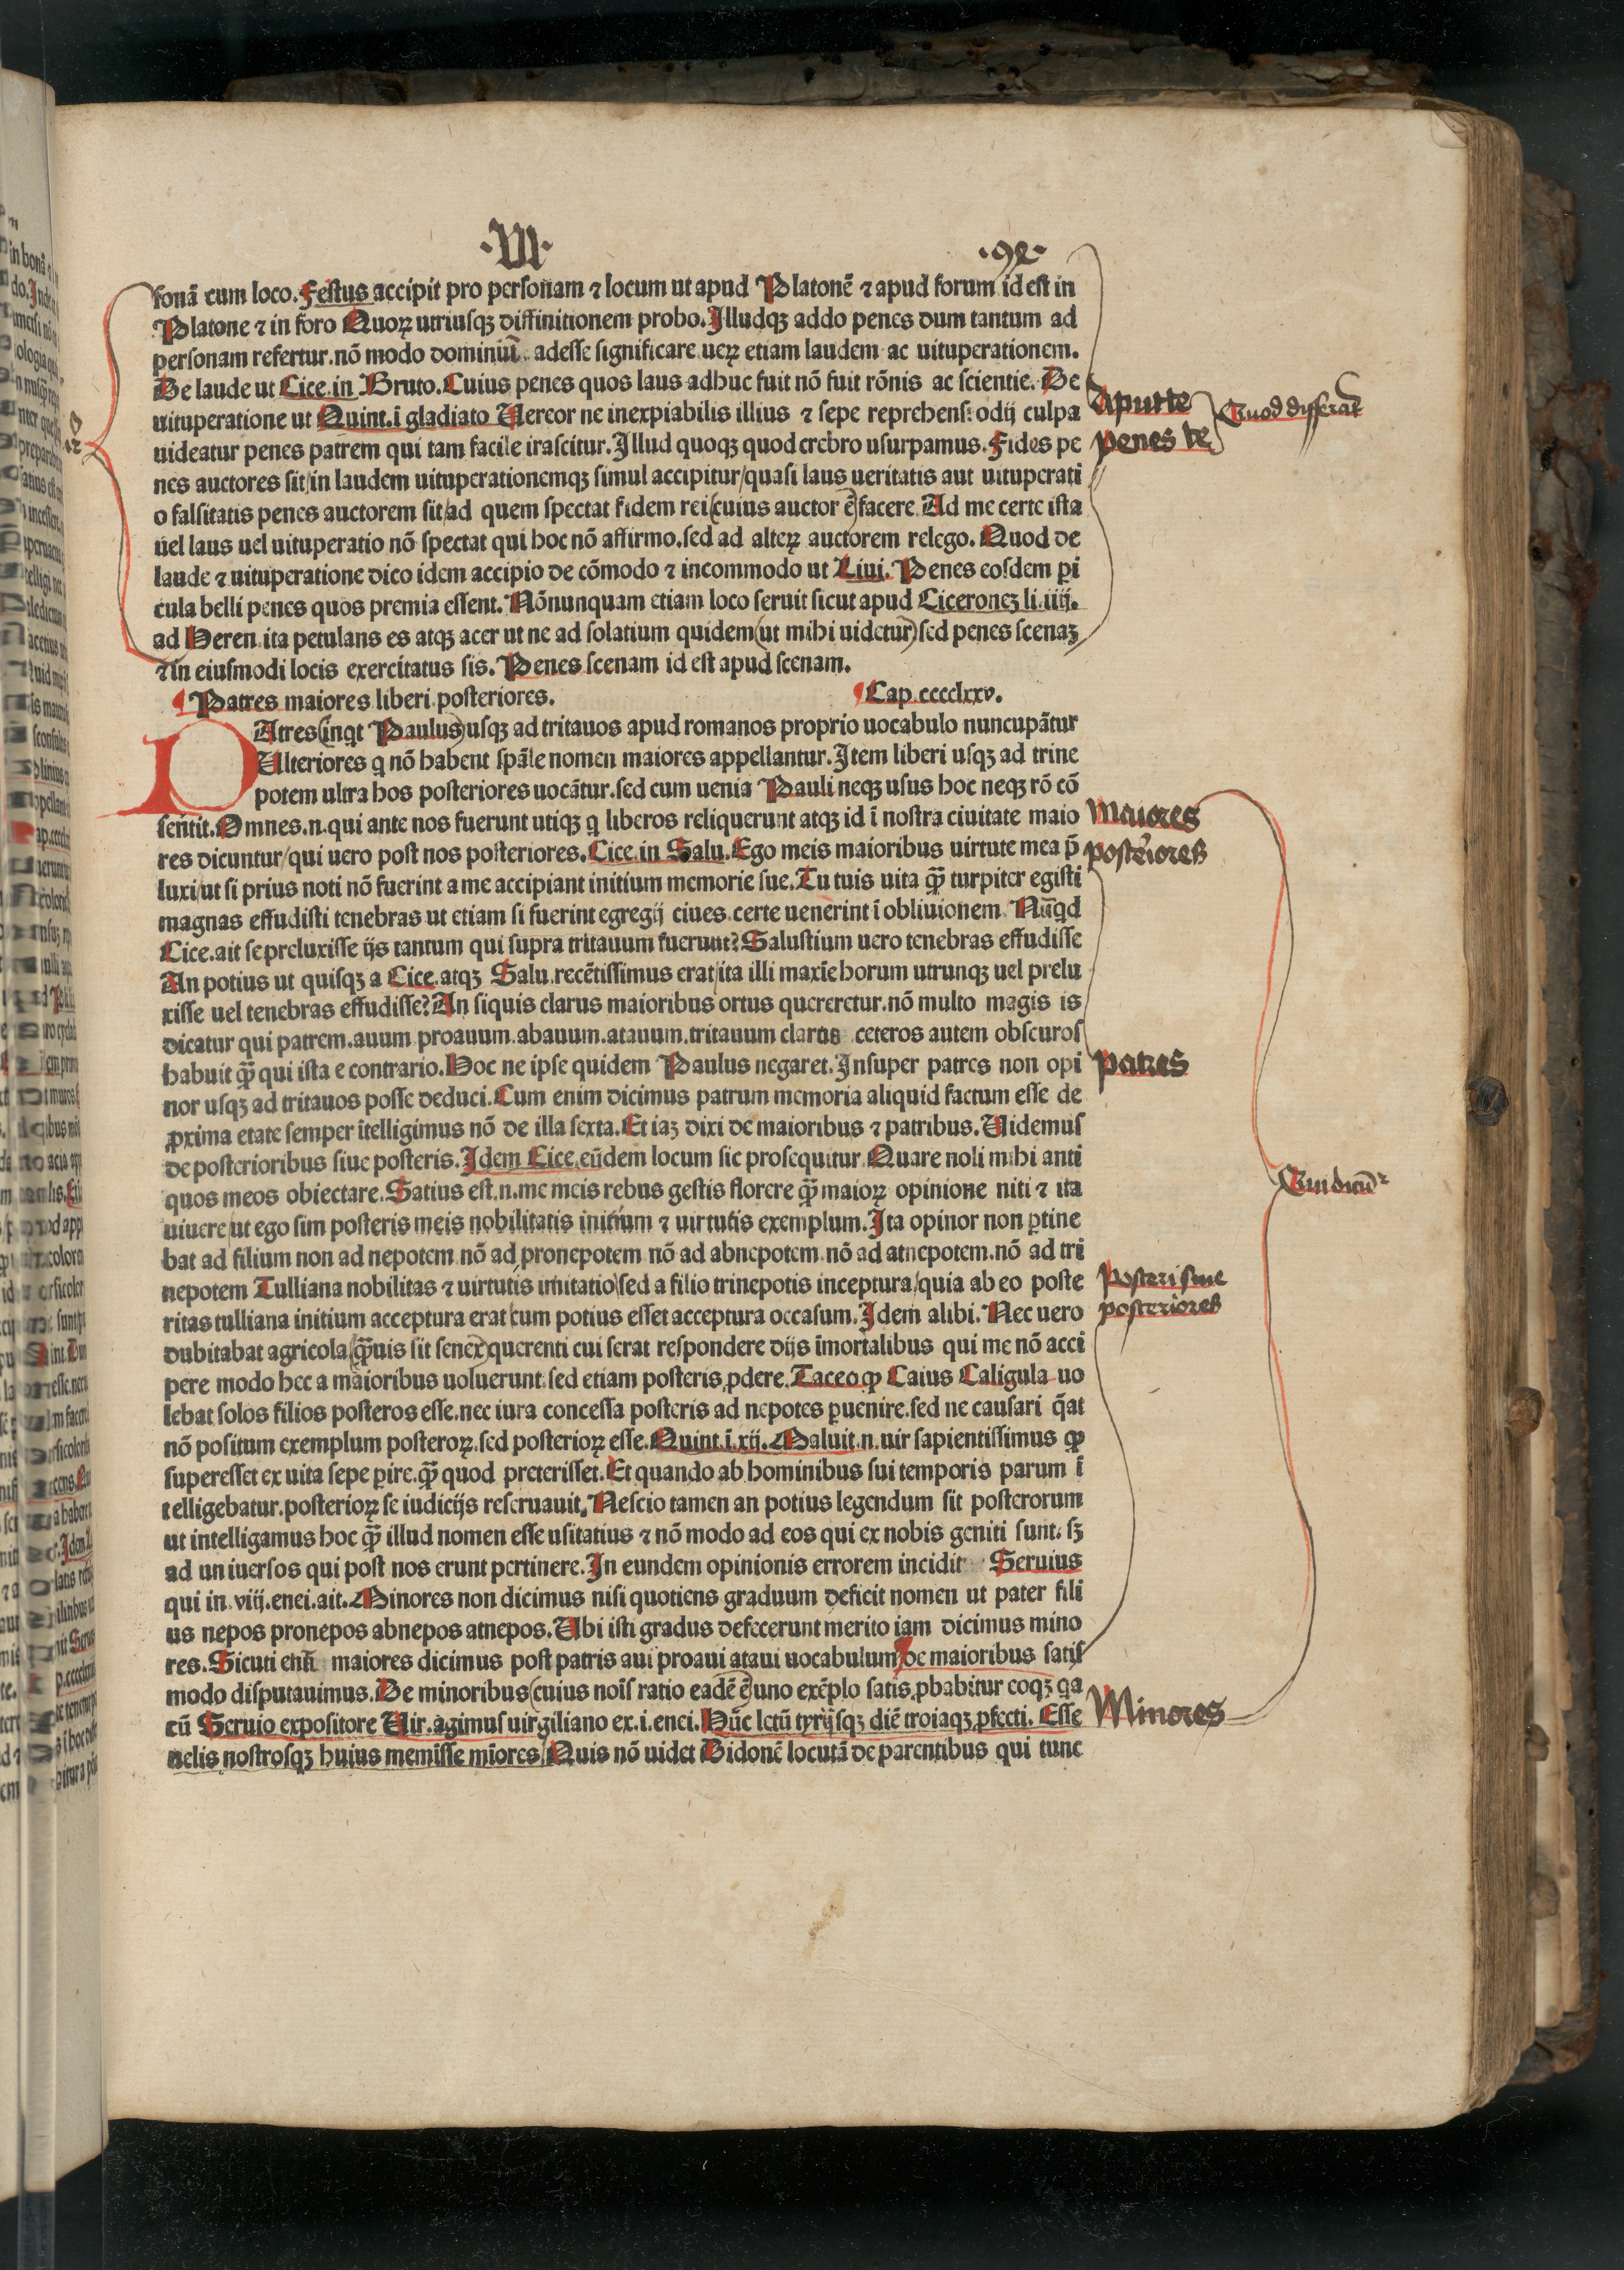 ·VI·
fonã cum loco. Festus accipit pro personam ⁊ locum ut apud Platonē ⁊ apud forum id est in
Platone ⁊ in foro Quoꝝ utriusqꝫ diffinitionem probo. Illudqꝫ addo penes dum tantum ad
personam refertur. nō modo dominiū adesse significare ueꝝ etiam laudem ac uituperationem.
De laude ut Cice. in Bruto. Cuius penes quos laus adhuc fuit nō fuit rōnis ac scientie. De
uituperatione ut Quint. ī gladiato Uereor ne inexpiabilis illius ⁊ sepe reprehensi odij culpa
uideatur penes patrem qui tam facile irascitur. Illud quoqꝫ quod crebro usurpamus. Fides pe
nes auctores sit/in laudem uituperationemqꝫ simul accipitur/quasi laus ueritatis aut uituperati
o falsitatis penes auctorem sit/ad quem spectat fidem rei (cuius auctor ē) facere. Ad me certe ista
uel laus uel uituperatio nō spectat qui hoc nō affirmo. sed ad alteꝝ auctorem relego. Quod de
laude ⁊ uituperatione dico idem accipio de cōmodo ⁊ incommodo ut Liui. Penes eosdem ꝑi
cula belli penes quos premia essent. Nōnunquam etiam loco seruit sicut apud Ciceroneꝫ li. iiij.
ad Heren. ita petulans es atqꝫ acer ut ne ad solatium quidem (ut mihi uidetur) sed penes scenaꝫ
⁊ in eiusmodi locis exercitatus sis. Penes scenam id est apud scenam.
¶ Patres maiores liberi posteriores. ¶ Cap. cccclxxv.
PAtres (inqt Paulus) usqꝫ ad tritauos apud romanos proprio uocabulo nuncupãtur
Ulteriores q nō habent spãle nomen maiores appellantur. Item liberi usqꝫ ad trine
potem ultra hos posteriores uocãtur. sed cum uenia Pauli neqꝫ usus hoc neqꝫ rō cō
sentit. Omnes .n. qui ante nos fuerunt utiqꝫ q liberos reliquerunt atqꝫ id ī nostra ciuitate maio
res dicuntur/qui uero post nos posteriores. Cice. in Salu. Ego meis maioribus uirtute mea p̄
luxi/ut si prius noti nō fuerint a me accipiant initium memorie sue. Tu tuis uita q̄ꝫ turpiter egisti
magnas effudisti tenebras ut etiam si fuerint egregij ciues. certe uenerint ī obliuionem. Nūqd
Cice. ait se preluxisse ijs tantum qui supra tritauum fuerunt? Salustium uero tenebras effudisse
An potius ut quisqꝫ a Cice. atqꝫ Salu. recētissimus erat/ita illi maxīe horum utrunqꝫ uel prelu
xisse uel tenebras effudisse? An siquis clarus maioribus ortus quereretur. nō multo magis is
dicatur qui patrem. auum proauum. abauum. atauum. tritauum claros ceteros autem obscuros
habuit q̄ꝫ qui ista e contrario. Hoc ne ipse quidem Paulus negaret. Insuper patres non opi
nor usqꝫ ad tritauos posse deduci. Cum enim dicimus patrum memoria aliquid factum esse de
ꝓxima etate semper ītelligimus nō de illa sexta. Et iaꝫ dixi de maioribus ⁊ patribus. Uidemus
de posterioribus siue posteris. Idem Cice. eūdem locum sic prosequitur. Quare noli mihi anti
quos meos obiectare. Satius est .n. me meis rebus gestis florere q̄ꝫ maioꝝ opinione niti ⁊ ita
uiuere ut ego sim posteris meis nobilitatis initium ⁊ uirtutis exemplum. Ita opinor non ꝑtine
bat ad filium non ad nepotem nō ad pronepotem nō ad abnepotem. nō ad atnepotem. nō ad tri
nepotem Tulliana nobilitas ⁊ uirtutis imitatio/sed a filio trinepotis inceptura/quia ab eo poste
ritas tulliana initium acceptura erat cum potius esset acceptura occasum. Idem alibi. Nec uero
dubitabat agricola (q̄ꝫuis sit senex) querenti cui serat respondere dijs īmortalibus qui me nō acci
pere modo hec a maioribus uoluerunt. sed etiam posteris ꝓdere. Taceo ꝙ Caius Caligula uo
lebat solos filios posteros esse. nec iura concessa posteris ad nepotes ꝑuenire. sed ne causari q̄at
nō positum exemplum posteroꝝ. sed posterioꝝ esse. Quint. ī. xij. Maluit .n. uir sapientissimus ꝙ
superesset ex uita sepe ꝑire. q̄ꝫ quod preterisset. Et quando ab hominibus sui temporis parum ī
telligebatur. posterioꝝ se iudicijs reseruauit. Nescio tamen an potius legendum sit posterorum
ut intelligamus hoc q̄ꝫ illud nomen esse usitatius ⁊ nō modo ad eos qui ex nobis geniti sunt. sꝫ
ad uniuersos qui post nos erunt pertinere. In eundem opinionis errorem incidit Seruius
qui in. viij. enei. ait. Minores non dicimus nisi quotiens graduum deficit nomen ut pater fili
us nepos pronepos abnepos atnepos. Ubi isti gradus defecerunt merito iam dicimus mino
res. Sicuti enī maiores dicimus post patris aui proaui ataui uocabulum/de maioribus satis
modo disputauimus. De minoribus (cuius noīs ratio eadē ē) uno exēplo satis ꝓbabitur eoqꝫ qa
cū Seruio expositore Uir. agimus uirgiliano ex. i. enei. Hūc letū tyrijsqꝫ diē troiaqꝫ ꝓfecti. Esse
uelis nostrosqꝫ huius memisse mīores/Quis nō uidet Didonē locutã de parentibus qui tunc
Apud te
penes te
Quod differat
Maiores
posteriores
patres
Posteri siue
posteriores
Minores